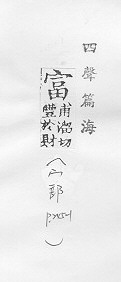 四聲篇海
富甫溜切
豐於財
(宀部)